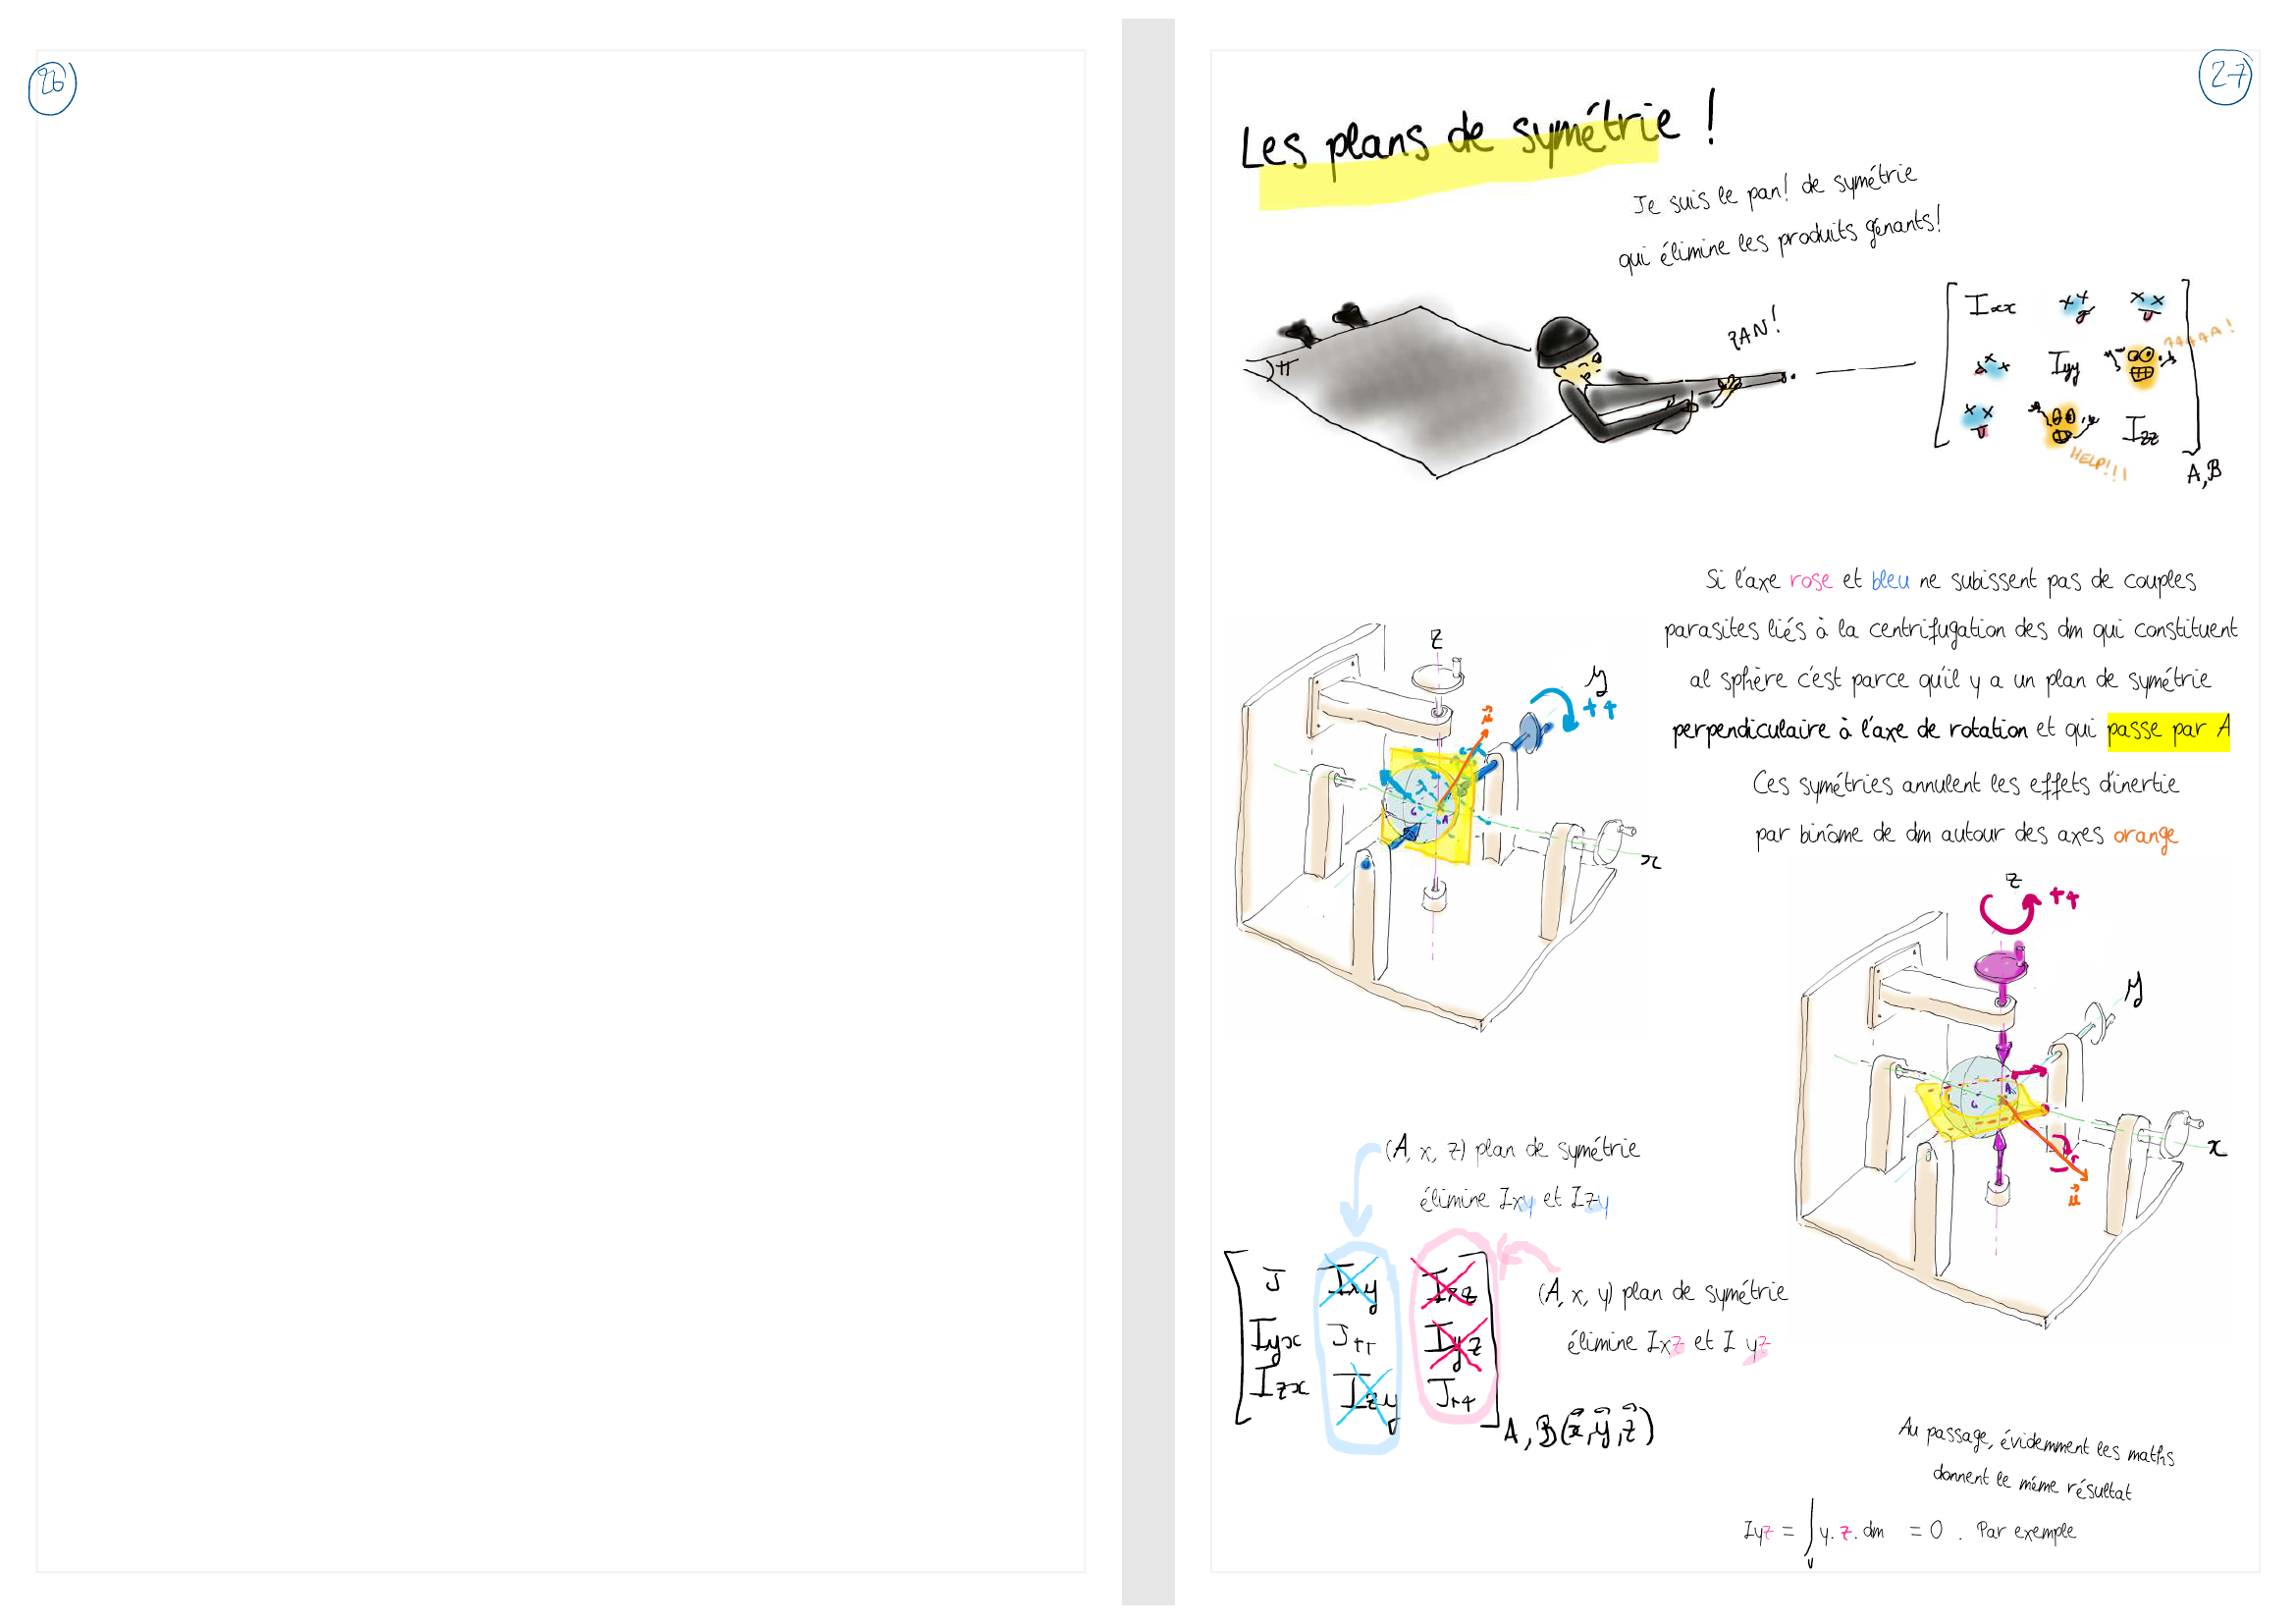 26
27
Les plans de symétrie !
Je suis le pan! de symétrie
qui élimine les produits gênants!
π
PAN!
Ixx
Iyy
AAAAA!
Izz
HELP!!!
A, B
Si l'axe rose et bleu ne subissent pas de couples
parasites liés à la centrifugation des dm qui constituent
al sphère c'est parce qu'il y a un plan de symétrie
perpendiculaire à l'axe de rotation et qui passe par A
Ces symétries annulent les effets d'inertie
par binôme de dm autour des axes orange
z
y
++
u
G
A
x
z
++
y
G
A
x
u
(A, x, z) plan de symétrie
élimine Ixy et Izy
J Ixy Ixz
Iyx J++ Iyz
Izx Izy J++
A, B(x, y, z)
(A, x, y) plan de symétrie
élimine Ixz et I yz
Au passage, évidemment les maths
donnent le même résultat
Iyz = ∫ y. z. dm = 0 . Par exemple
v